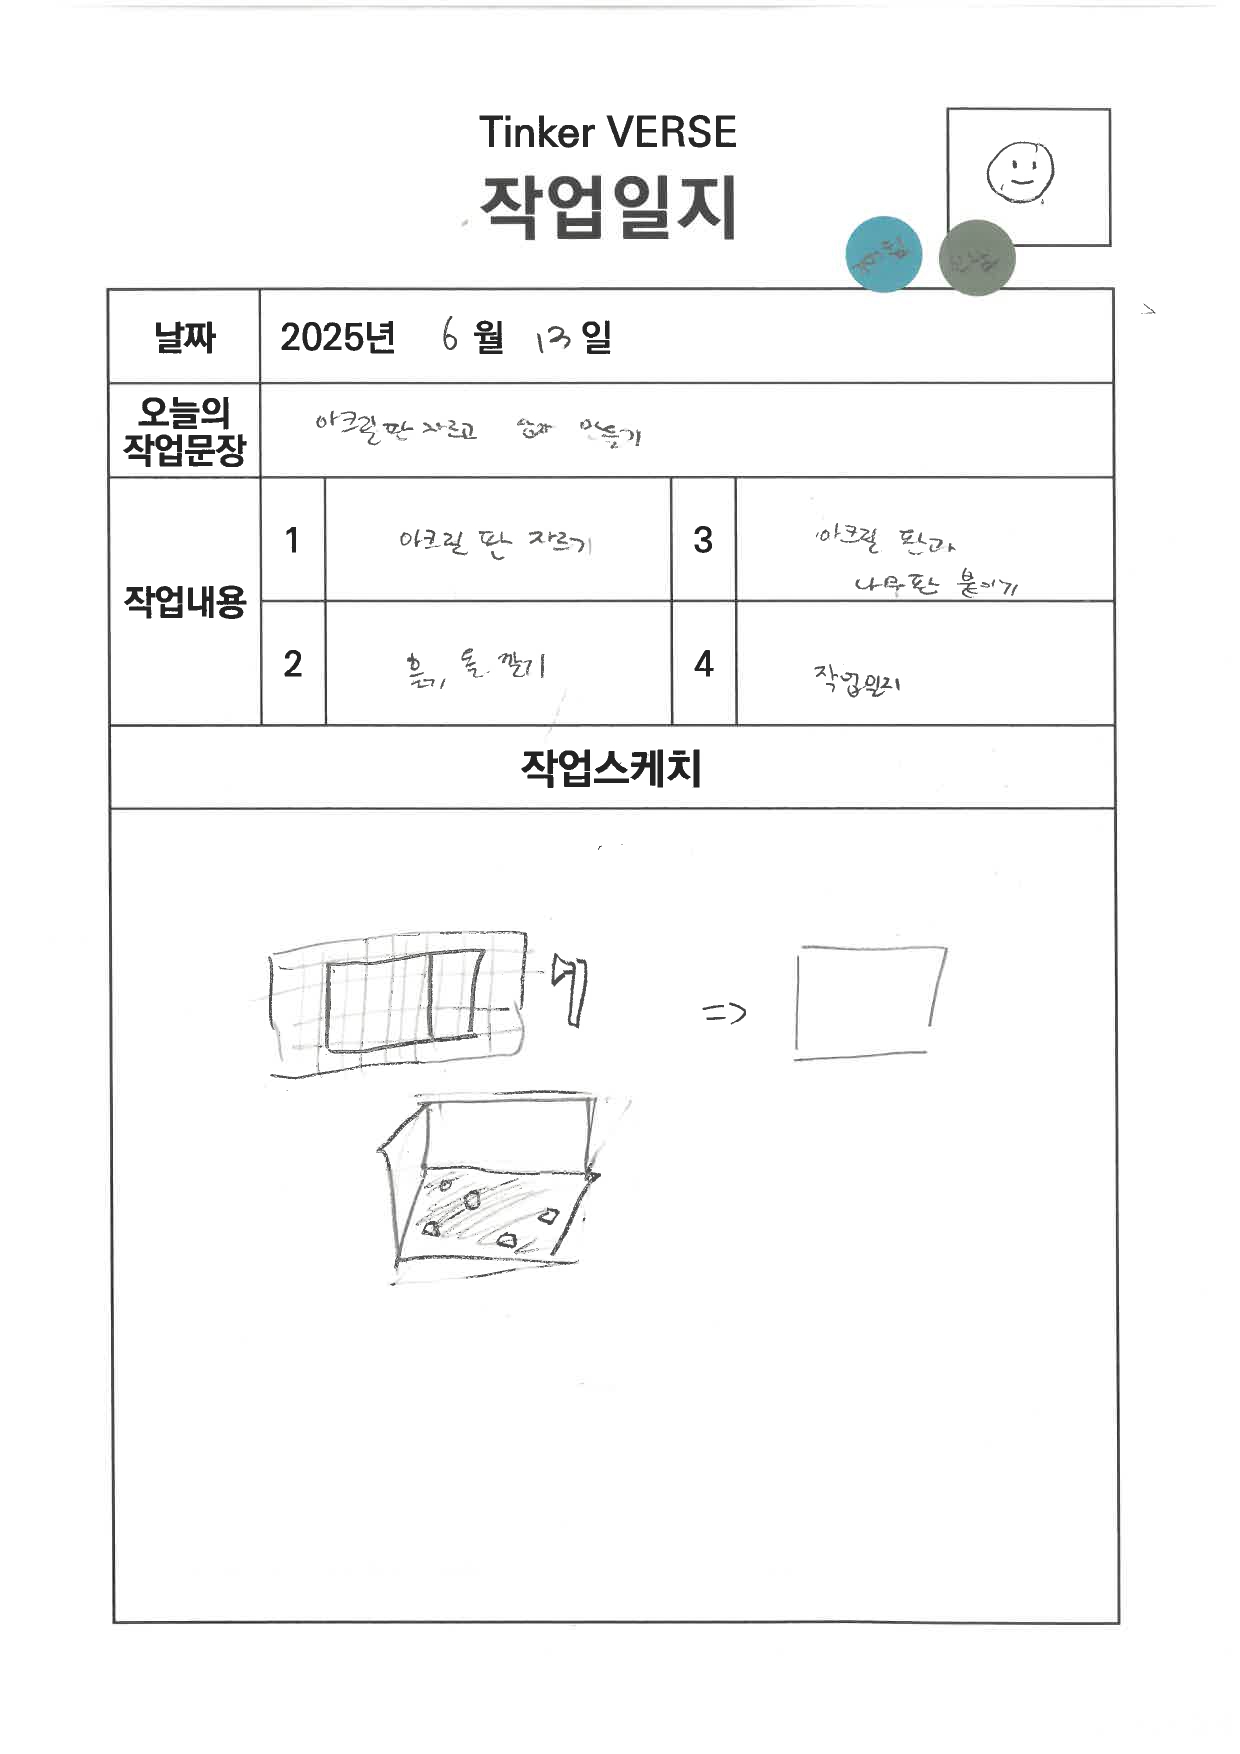 Tinker VERSE
작업일지
날짜
2025년 6월 13일
오늘의
작업문장
아크릴판 자르고 상자 만들기
작업내용
1
아크릴 판 자르기
3
아크릴 판과
나무판 붙이기
2
흙, 돌 깔기
4
작업일지
작업스케치
=>